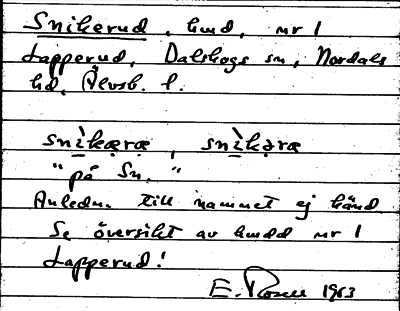 Snikerud, hmd, nr 1
Lapperud, Dalskogs sn, Nordals
hd, Älvsb. l.
snìkæræ, snìkəræ
"på Sn."
Anledn. till namnet ej känd
Se översikt av hmdd nr 1
Lapperud!
E. 1963